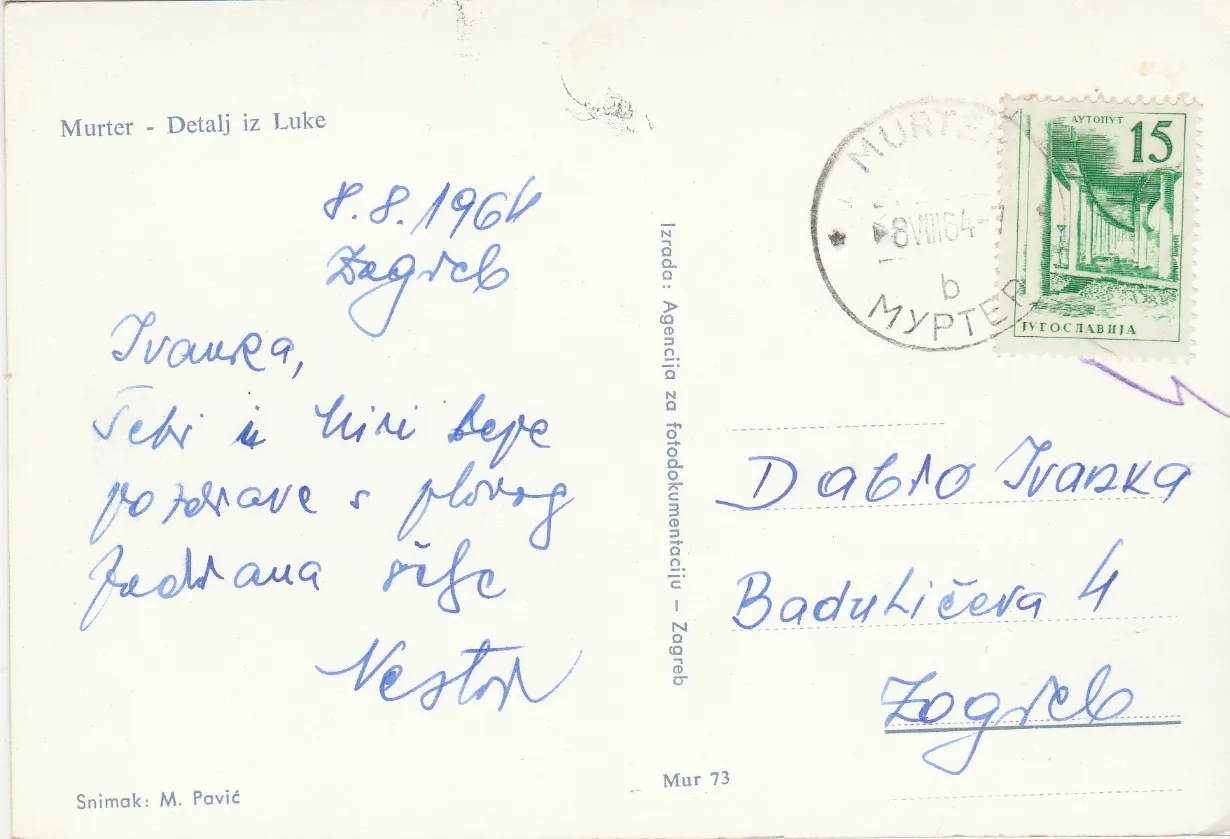 Murter - Detalj iz Luke
8.8.1964
Zagreb
Ivanka,
Tebi i Miri lepe
pozdrave s plavog
Jadrana šalje
Nestor
Snimak: M. Pavić
Izrada: Agencija za fotodokumentaciju – Zagreb
Mur 73
MURTER
8VIII64-7
b
МУРТЕР
АУТОПУТ
15
ЈУГОСЛАВИЈА
Dabro Ivanka
Baduličeva 4
Zagreb